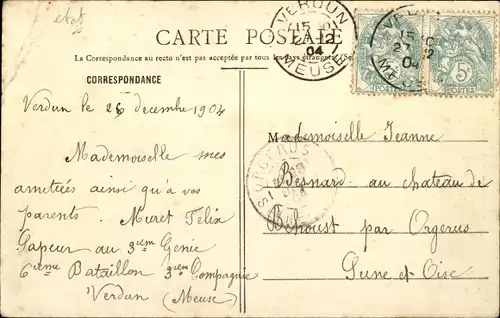 etat
VERDUN
15 
27 12
04
MEUSE
CARTE POSTALE
La Correspondance au recto n'est pas acceptée par tous les pays étrangers (Se
CORRESPONDANCE
Verdun le 26 decembre 1904
Mademoiselle mes
amitiées ainsi qu'a vos
parents. Muret Felix
Sapeur au 3iem Genie
6ieme Bataillon 3ieme Compagnie
Verdun (Meuse)
5c
POSTES
ORGERUS
Mademoiselle Jeanne
Besnard au chateau de
Béhoust par Orgerus
Seine et Oise